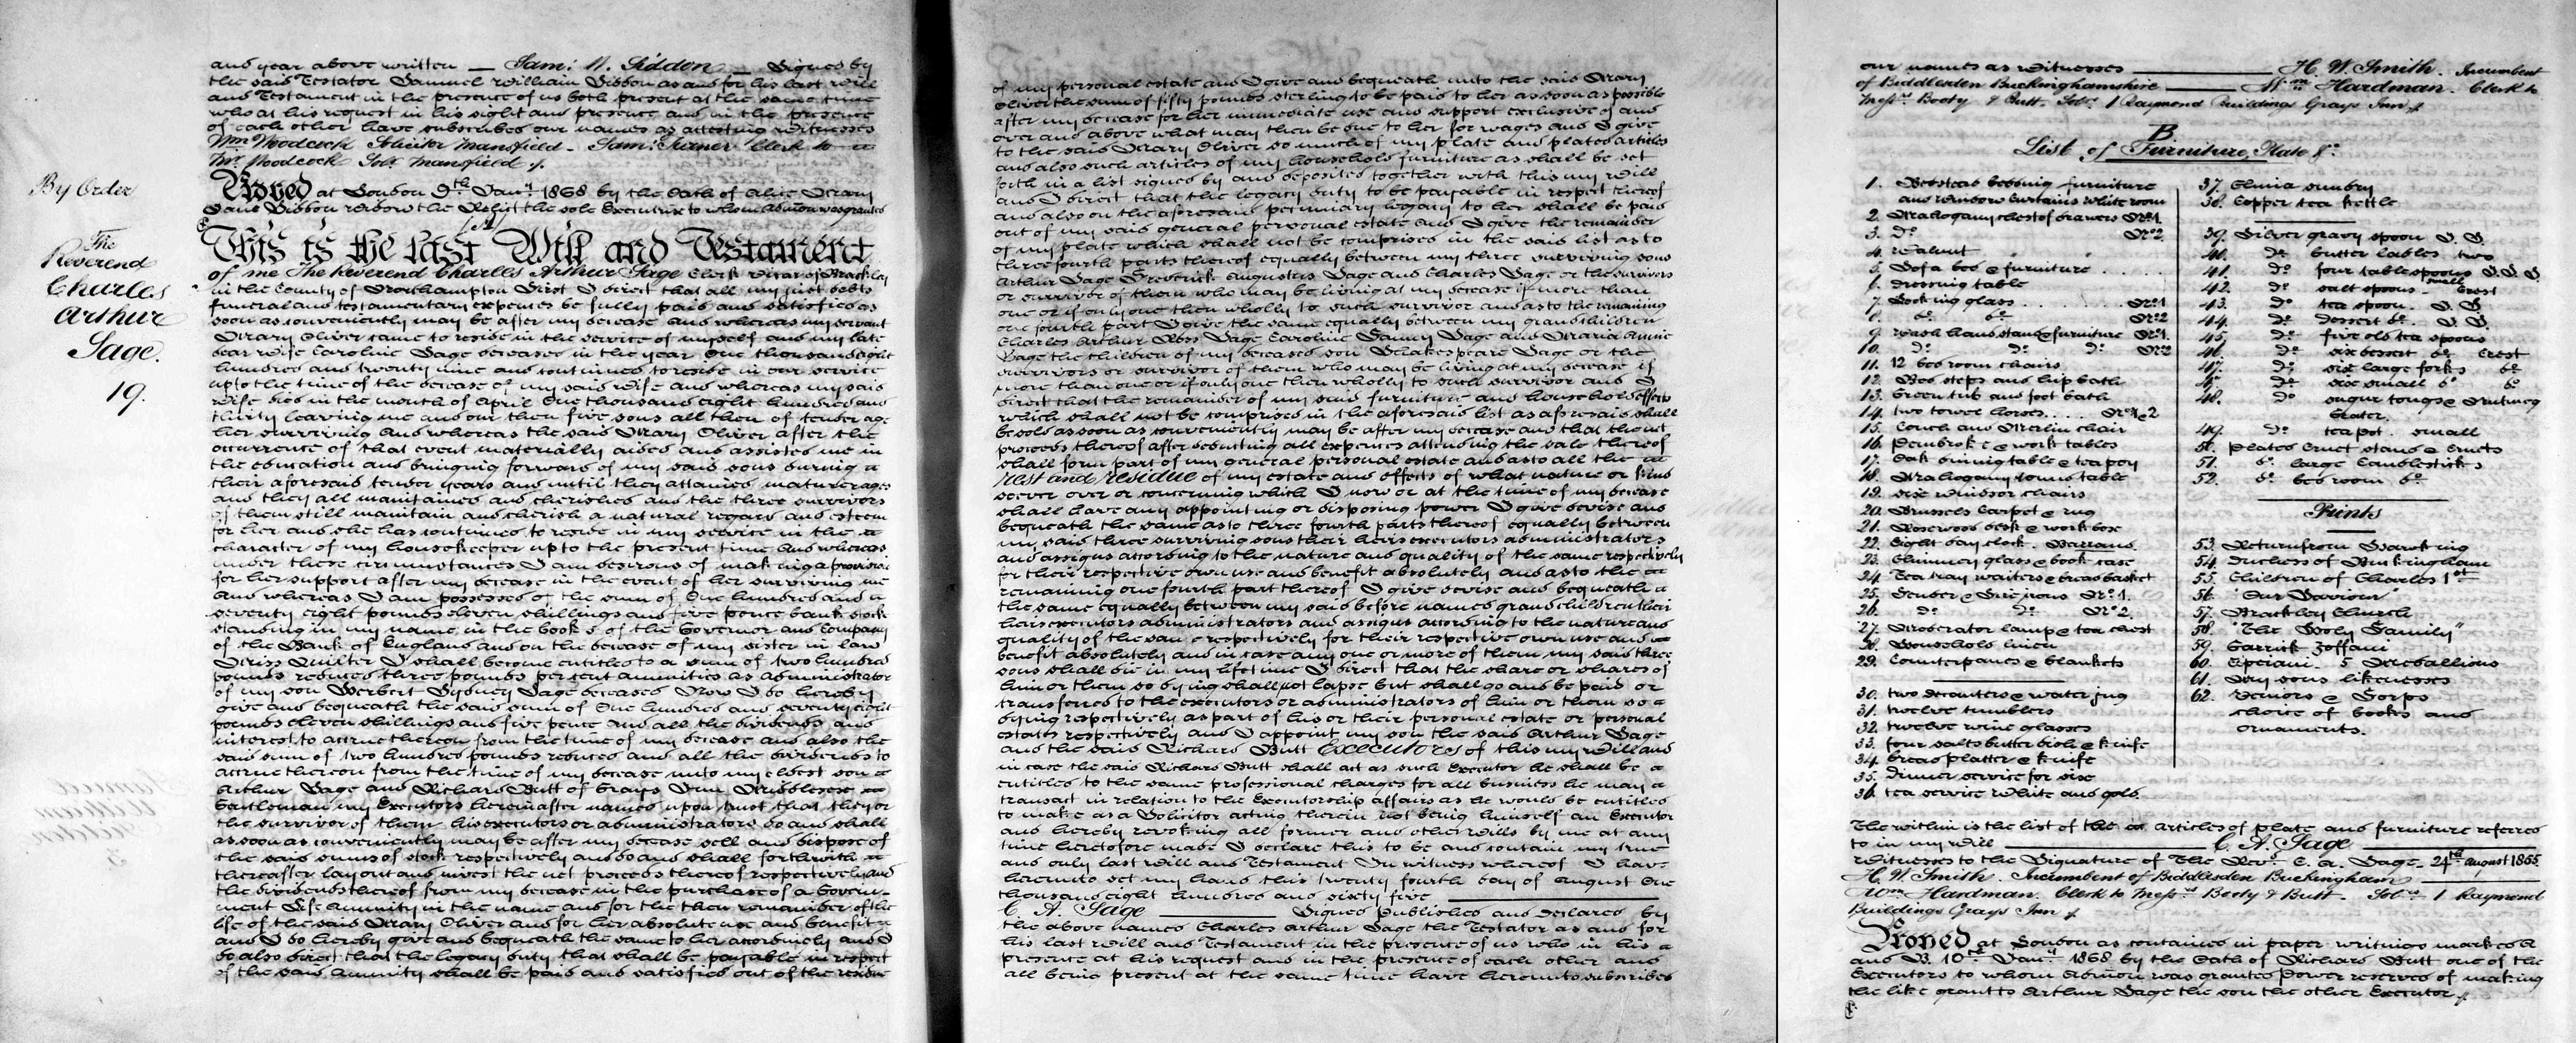 and year above written — Sam: W. Siddon — Signed by
the said Testator Samuel William Siddon as and for his last Will
and Testament in the presence of us both present at the same time
who at his request in his sight and presence and in the presence
of each other have subscribed our names as attesting Witnesses
Wm Woodcock Solicitor Mansfield - Sam: Turner Clerk to
Mr Woodcock Solr Mansfield
By Order
Proved at London 9th Jany 1868 by the Oath of Alice Mary
Jane Siddon Widow the Relict the sole Executrix to whom Admon was granted
(A)
The
Reverend
Charles
Arthur
Sage.
19.
This is the last Will and Testament
of me The Reverend Charles Arthur Sage Clerk Vicar of Brackley
in the County of Northampton First I direct that all my just debts
funeral and testamentary expenses be fully paid and satisfied as
soon as conveniently may be after my decease And whereas my servant
Mary Oliver came to reside in the service of myself and my late
dear Wife Caroline Sage deceased in the year One thousand eight
hundred and twenty nine and continued to reside in our service
up to the time of the decease of my said Wife and whereas my said
Wife died in the month of April One thousand eight hundred and
thirty leaving me and our then five sons all then of tender age
her surviving And whereas the said Mary Oliver after the
occurrence of that event materially aided and assisted me in
the education and bringing forward of my said sons during
their aforesaid tender years and until they attained mature ages
and they all maintained and cherished and the three survivors
of them still maintain and cherish a natural regard and esteem
for her and she has continued to reside in my service in the
character of my housekeeper up to the present time And whereas
under these circumstances I am desirous of making a provision
for her support after my decease in the event of her surviving me
And whereas I am possessed of the sum of One hundred and
seventy eight pounds eleven shillings and five pence bank stock
standing in my name in the books of the Governor and Company
of the Bank of England and on the decease of my sister in law
Miss Quilter I shall become entitled to a sum of two hundred
pounds reduced three pounds per cent annuities as administrator
of my son Herbert Sydney Sage deceased Now I do hereby
give and bequeath the said sum of One hundred and seventy eight
pounds eleven shillings and five pence and all the dividends and
interest to accrue thereon from the time of my decease and also the
said sum of two hundred pounds reduced and all the dividends to
accrue thereon from the time of my decease unto my eldest son
Arthur Sage and Richard Butt of Grays Inn Middlesex
Gentleman my Executors hereinafter named upon trust that they or
the survivor of them his executors or administrators do and shall
as soon as conveniently may be after my decease sell and dispose of
the said sums of stock respectively and do and shall forthwith
thereafter lay out and invest the net proceeds thereof respectively and
the dividends thereof from my decease in the purchase of a Govern-
ment Life Annuity in the name and for the then remainder of the
life of the said Mary Oliver and for her absolute use and benefit
and I do hereby give and bequeath the same to her accordingly and I
do also direct that the legacy duty that shall be payable in respect
of the said Annuity shall be paid and satisfied out of the residue
of my personal estate and I give and bequeath unto the said Mary
Oliver the sum of fifty pounds sterling to be paid to her as soon as possible
after my decease for her immediate use and support exclusive of and
over and above what may then be due to her for wages and I give
to the said Mary Oliver so much of my plate and plated articles
and also such articles of my household furniture as shall be set
forth in a list signed by and deposited together with this my Will
and I direct that the legacy duty to be payable in respect thereof
and also on the aforesaid pecuniary legacy to her shall be paid
out of my said general personal estate and I give the remainder
of my plate which shall not be comprised in the said list as to
three fourth parts thereof equally between my three surviving sons
Arthur Sage Frederick Augustus Sage and Charles Sage or the survivors
or survivor of them who may be living at my decease if more than
one or if only one then wholly to such survivor and as to the remaining
one fourth part I give the same equally between my grandchildren
Charles Arthur Ross Sage Caroline Fanney Sage and Maria Annie
Sage the children of my deceased son Shakespeare Sage or the
survivors or survivor of them who may be living at my decease if
more than one or if only one then wholly to such survivor and I
direct that the remainder of my said furniture and household effects
which shall not be comprised in the aforesaid list as aforesaid shall
be sold as soon as conveniently may be after my decease and that the net
proceeds thereof after deducting all expenses attending the sale thereof
shall form part of my general personal estate and as to all the
rest and residue of my estate and effects of what nature or kind
soever over or concerning which I now or at the time of my decease
shall have any appointing or disposing power I give devise and
bequeath the same as to three fourth parts thereof equally between
my said three surviving sons their heirs executors administrators
and assigns according to the nature and quality of the same respectively
for their respective own use and benefit absolutely and as to the
remaining one fourth part thereof I give devise and bequeath
the same equally between my said before named grandchildren their
heirs executors administrators and assigns according to the nature and
quality of the same respectively for their respective own use and
benefit absolutely and in case any one or more of them my said three
sons shall die in my lifetime I direct that the share or shares of
him or them so dying shall not lapse but shall go and be paid or
transferred to the executors or administrators of him or them so
dying respectively as part of his or their personal estate or personal
estates respectively and I appoint my son the said Arthur Sage
and the said Richard Butt Executors of this my Will and
in case the said Richard Butt shall act as such Executor he shall be
entitled to the same professional charges for all business he may
transact in relation to the Executorship affairs as he would be entitled
to make as a Solicitor acting therein not being himself an Executor
and hereby revoking all former and other Wills by me at any
time heretofore made I declare this to be and contain my true
and only last Will and Testament In witness whereof I have
hereunto set my hand this twenty fourth day of August One
thousand eight hundred and sixty five
C. A. Sage — Signed Published and Declared by
the above named Charles Arthur Sage the Testator as and for
his last Will and Testament in the presence of us who in his
presence at his request and in the presence of each other and
all being present at the same time have hereunto subscribed
our names as Witnesses — H. W. Smith. Incumbent
of Biddlesden Buckinghamshire — Wm Hardman. Clerk to
Messrs Booty & Butt. Solrs 1 Raymond Buildings Grays Inn
B
List of Furniture, Plate &c
1. Bedstead bedding furniture
and window curtains white room
2. Mahogany chest of drawers No 1
3. Do No 2
4. Walnut " "
5. Sofa bed & furniture
6. Dressing table
7. Looking glass No 1
8. do do No 2
9. Wash hand stand & furniture No 1.
10. do do do No 2
11. 12 bed room chairs
12. Bed steps and hip bath
13. Green tub and foot bath
14. two towel horses No 1 & 2
15. Couch and Merlin chair
16. Pembroke & work tables
17. Oak dining table & teapoy
18. Mahogany round table
19. Six Windsor chairs
20. Brussels Carpet & rug
21. Rosewood desk & work box
22. Eight day clock. Barraud.
23. Chimney glass & book case
24. Tea tray waiters & bread basket
25. Fender & fire irons No 1.
26. Do Do No 2.
27. Moderator lamp & tea chest
28. Household linen
29. Counterpanes & blankets
30. two decanters & water jug
31. twelve tumblers
32. twelve wine glasses
33. four salts butter dish & knife
34. bread platter & knife
35. Dinner service for six
36. tea service White and gold.
37. China sundry
38. Copper tea kettle
39. Silver gravy spoon S. S.
40. do butter ladles two
41. do four table spoons S. S. S
42. do salt spoons small Crest
43. do tea spoon. S. S.
44. do dessert do. S. S.
45. do five old tea spoons
46. do six dessert do Crest
47. do six large forks do
48. do six small do do
48. do sugar tongs & Nutmeg
Grater.
49. do teapot. small
50. Plated Cruet stand & Cruets
51. do large Candlesticks
52. do bed room do
Prints
53. Return from Hawking
54. Duchess of Buckingham
55. Children of Charles 1st
56. "Our Saviour"
57. Brackley Church
58. "The Holy Family"
59. Garrick Zoffani
60. Cipriani. 5 Medallions
61. My sons likenesses
62. Seniors & Dorps
choice of books and
ornaments.
The within is the list of the articles of plate and furniture referred
to in my Will — C. A. Sage
Witnesses to the Signature of The Revd C. A. Sage. 24th August 1865
H. W. Smith. Incumbent of Biddlesden Buckingham
Wm Hardman. Clerk to Messrs Booty & Butt. Solrs 1 Raymond
Buildings Grays Inn
Proved at London as contained in paper writings marked A
and B. 10th Jany 1868 by the Oath of Richard Butt one of the
Executors to whom Admon was granted Power reserved of making
the like grant to Arthur Sage the son the other Executor